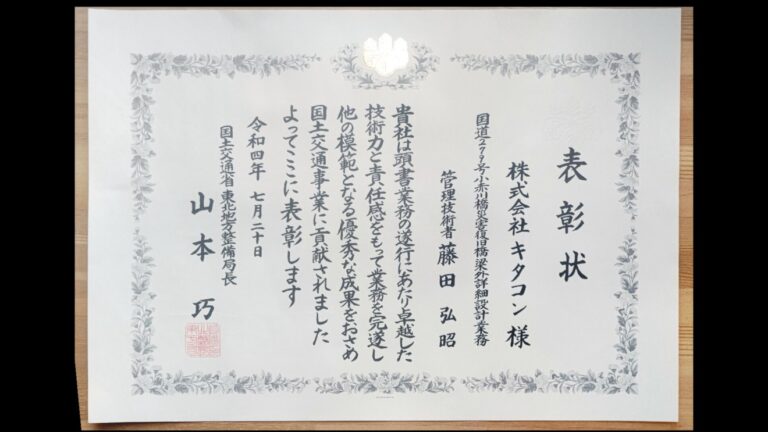 表彰状
株式会社 キタコン 様
国道279号小赤川橋災害復旧橋梁外詳細設計業務
管理技術者 藤田 弘昭
貴社は頭書業務の遂行にあたり卓越した
技術力と責任感をもって業務を完遂し
他の模範となる優秀な成果をおさめ
国土交通事業に貢献されました
よってここに表彰します
令和四年 七月二十日
国土交通省 東北地方整備局長
山本 巧